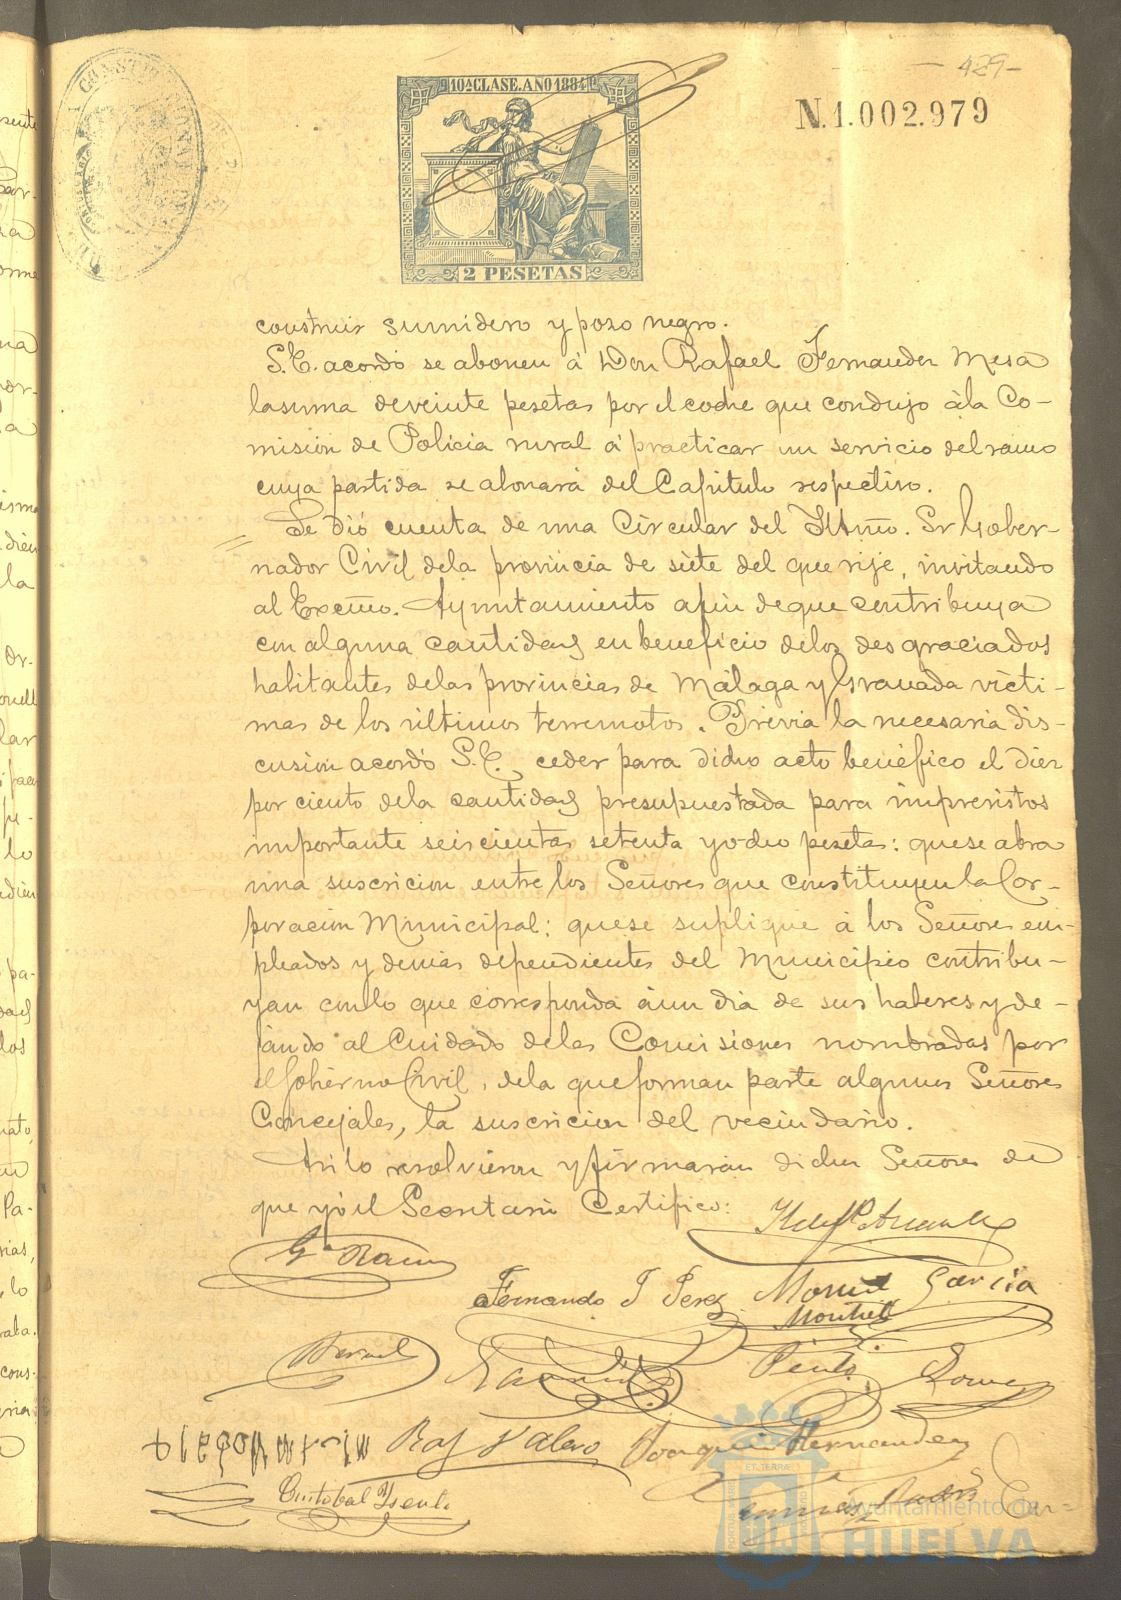 -429-
10ª CLASE. AÑO 1884
N.1.002.979
2 PESETAS
construir sumidero y pozo negro.
S.E. acordó se abonen á Don Rafael Fernandez Mesa
la suma de veinte pesetas por el coche que condujo á la Co-
misión de Policía rural á practicar un servicio del ramo
cuya partida se abonará del Capítulo respectivo.
Se dió cuenta de una Circular del Iltmo. Sr Gober-
nador Civil de la provincia de siete del que rije, invitando
al Excmo. Ayuntamiento a fin de que contribuya
con alguna cantidad en beneficio de los desgraciados
habitantes de las provincias de Málaga y Granada vícti-
mas de los últimos terremotos. Prévia la necesaria dis-
cusion acordó S.E. ceder para dicho acto benéfico el diez
por ciento de la cantidad presupuestada para imprevistos
importante seiscientas setenta y ocho pesetas: que se abra
una suscricion entre los Señores que constituyen la Cor-
poración Municipal: que se suplique á los Señores em-
pleados y demás dependientes del Municipio contribu-
yan con lo que corresponda á un dia de sus haberes y de-
jando al cuidado de las Comisiones nombradas por
el Gobierno Civil, de la que forman parte algunos Señores
Concejales, la suscricion del vecindario.
Asi lo resolvieron y firmarán dichos Señores de
que yó el Secretario Certifico:
Fernando Perez
Manuel Garcia
Montiel
Bernal
Pinto
Gomez
Raf Valero
Joaquin Hernandez
Cristobal
ET TERRÆ
Ayuntamiento de
HUELVA